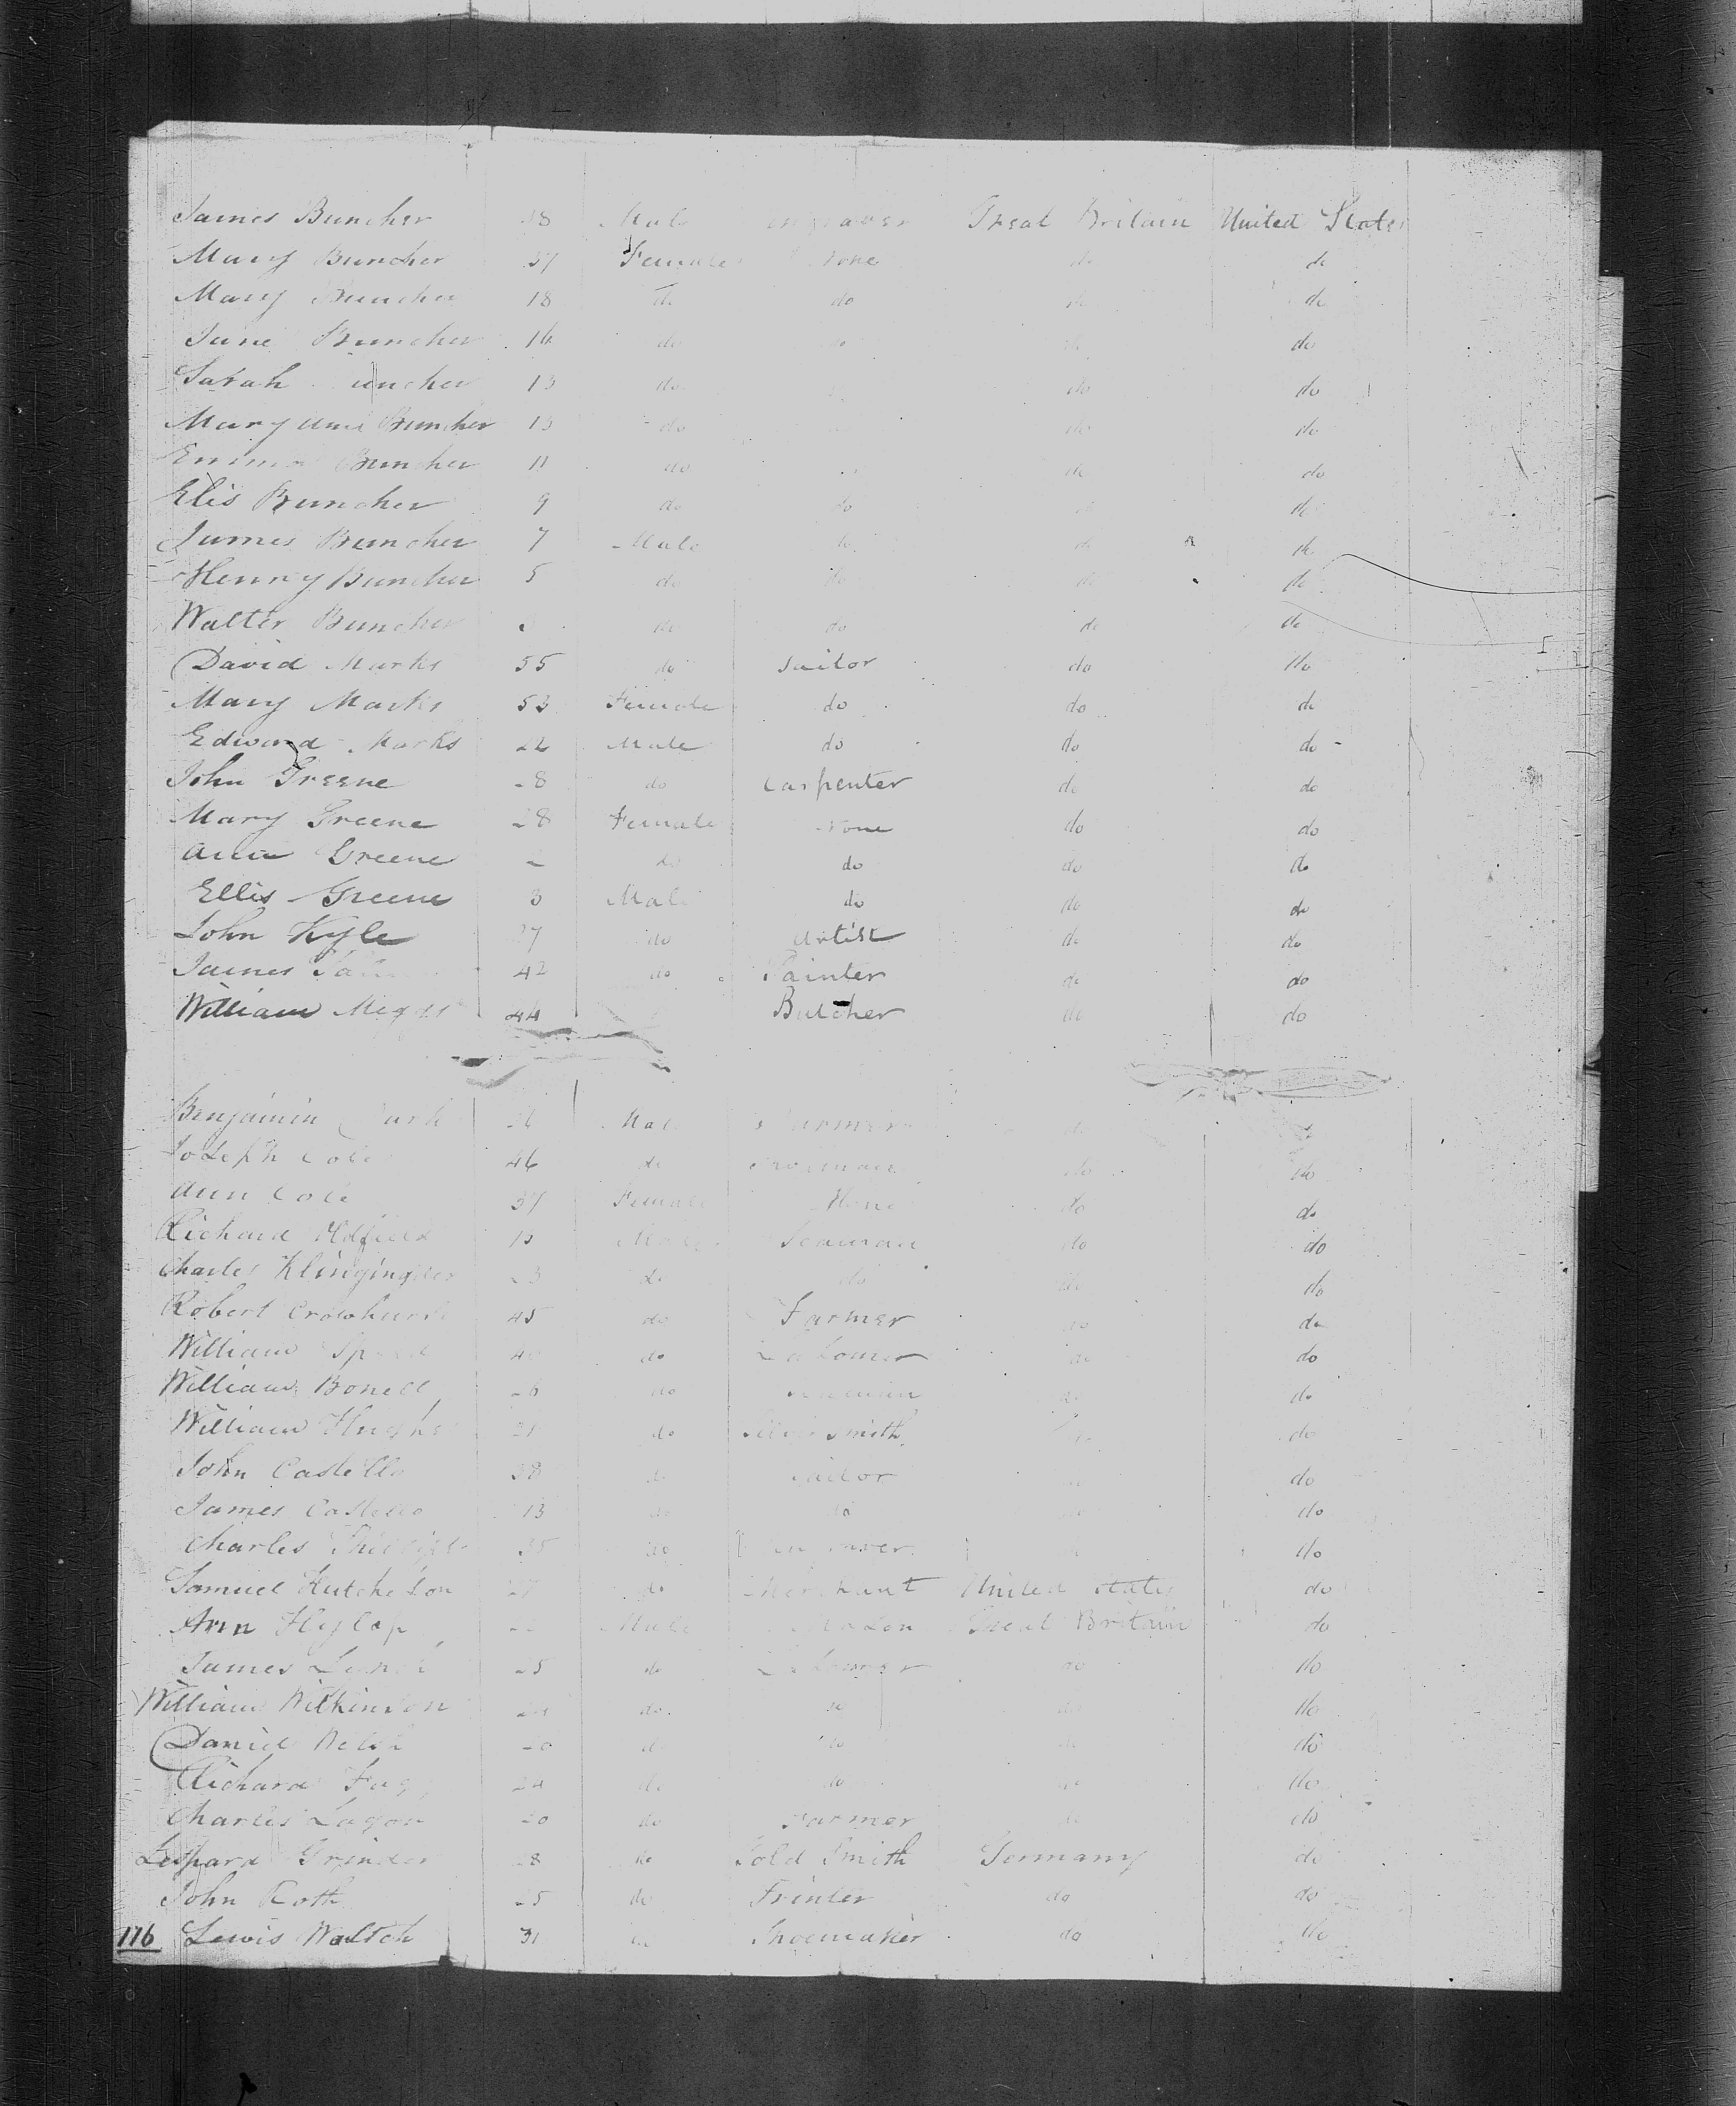 James Buncher 38 Male engraver Great Britain United States
Mary Buncher 37 Female None do do
Mary Buncher 18 do do do do
Jane Buncher 16 do do do do
Sarah uncher 13 do do do
Mary Ann Buncher 13 do do do
Emma Buncher 11 do do do
Elis Buncher 9 do do do do
James Buncher 7 Male do do do
Henry Buncher 5 do do do do
Walter Buncher do do do do
David Marks 55 do Tailor do do
Mary Marks 53 Female do do do
Edward Marks 22 Male do do do
John Greene 28 do Carpenter do do
Mary Greene 28 Female None do do
Ann Greene do do do do
Ellis Greene 3 Male do do do
John Kyle 27 do Artist do do
James 42 do Painter do do
William 44 Butcher do do
Benjamin Male Farmer do do
Joseph Cole 46 do do do
Ann Cole 37 Female None do do
Richard Oldfield Male Seaman do do
Charles 23 do do do do
Robert Crowhurst 45 do Farmer do do
William do Labourer do do
William Bonell 26 do Seaman do do
William Hughes 21 do Silver Smith do do
John Castello 38 do Tailor do do
James Castello 13 do do do do
Charles Phillips 35 do Engraver do do
Samuel Hutcheson 27 do Merchant United States do
Ann Hyslop Male Great Britain do
James 25 do Labourer do do
William Wilkinson 24 do do do do
Daniel Welsh 20 do do do do
Richard 24 do do do do
Charles Lagon 20 do Farmer do do
Grinder 28 do Gold Smith Germany do
John Roth 25 do Printer do do
116 Lewis Waltch 31 do Shoemaker do do